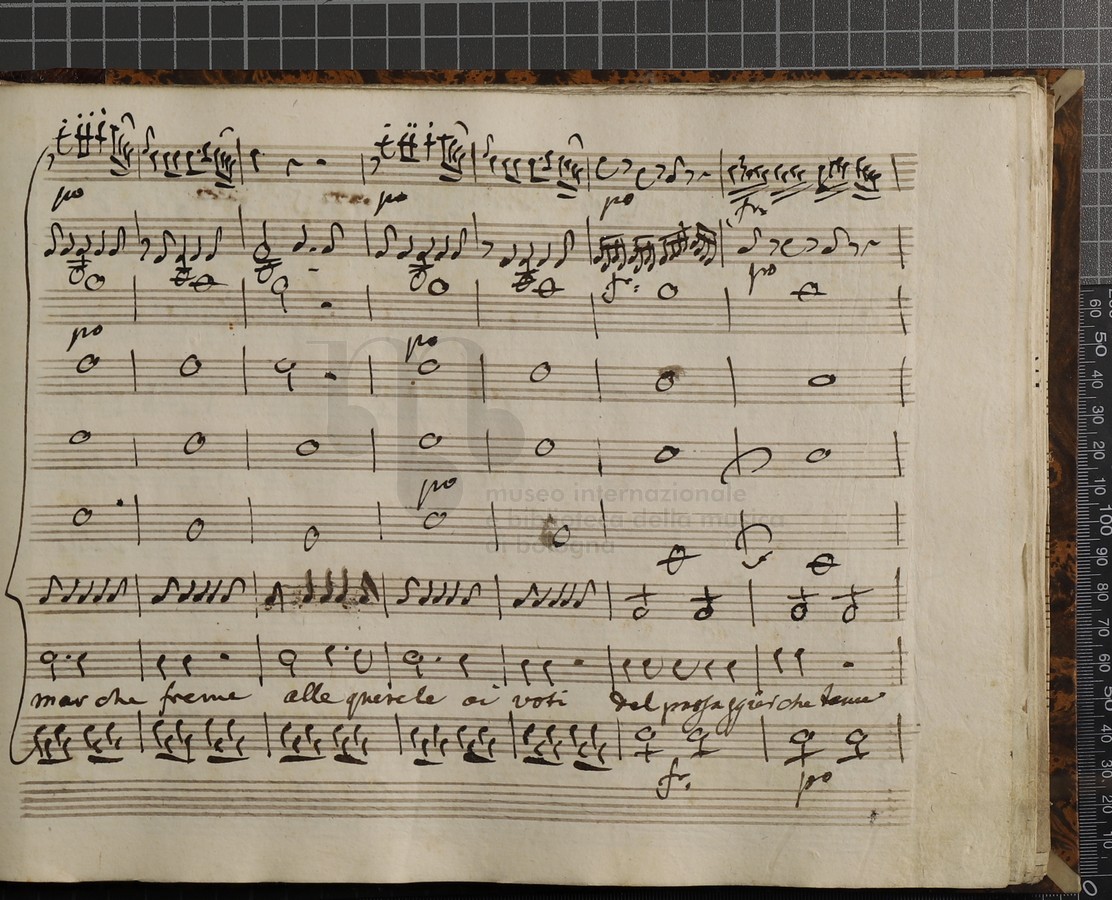 po po po fr.
fr: po
po po
po
mar che freme alle querele ai voti del passaggier che teme
fr. po
museo internazionale
e biblioteca della musica
di bologna
60 50 40 30 20 10 100 90 80 70 60 50 40 30 20 10 0